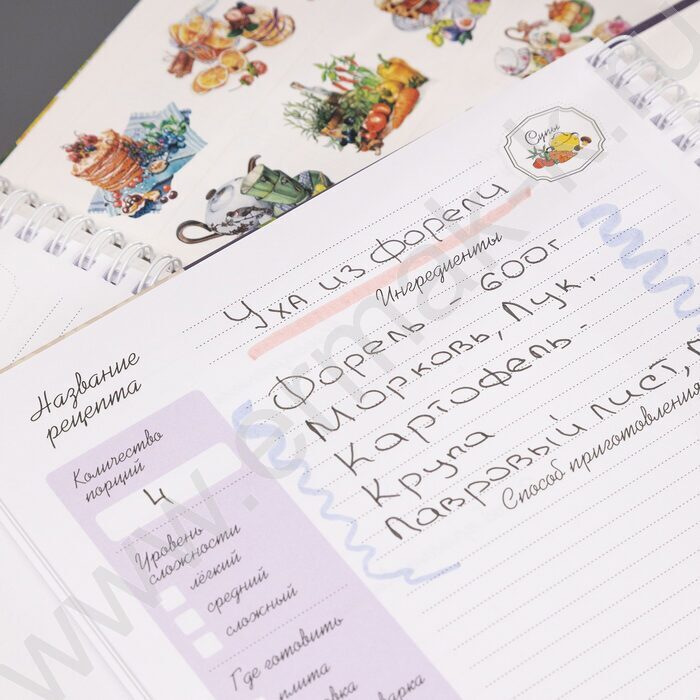 Супы
Название
рецепта
Уха из форели
Ингредиенты
Форель - 600г
Морковь, Лук.
Картофель -
Крупа
Лавровый лист,
Способ приготовления
Количество
порций
4
Уровень
сложности
лёгкий
средний
сложный
Где готовить
плита
www.ermak-k.ru